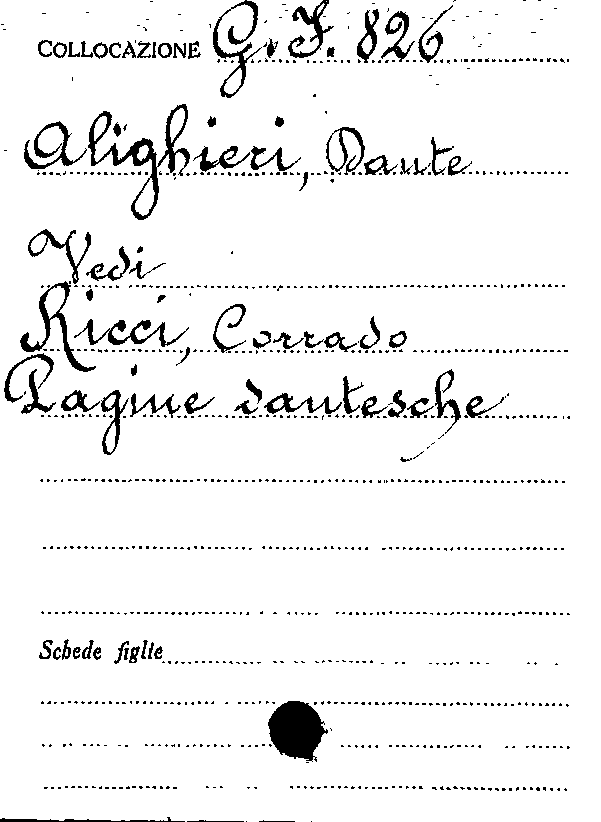 COLLOCAZIONE G. I. 826
Alighieri, Dante
Vedi
Ricci, Corrado
Pagine dantesche
Schede figlie